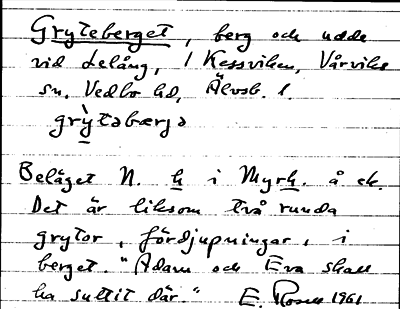 Gryteberget, berg och udde
vid Lelång, i Kessviken, Vårviks
sn. Vedbo hd, Älvsb. l.
grỳtəbærjə
Beläget N. h i Myrh. å ek.
Det är liksom två runda
grytor, fördjupningar, i
berget. "Adam och Eva skall
ha suttit där." E. Rosell 1961